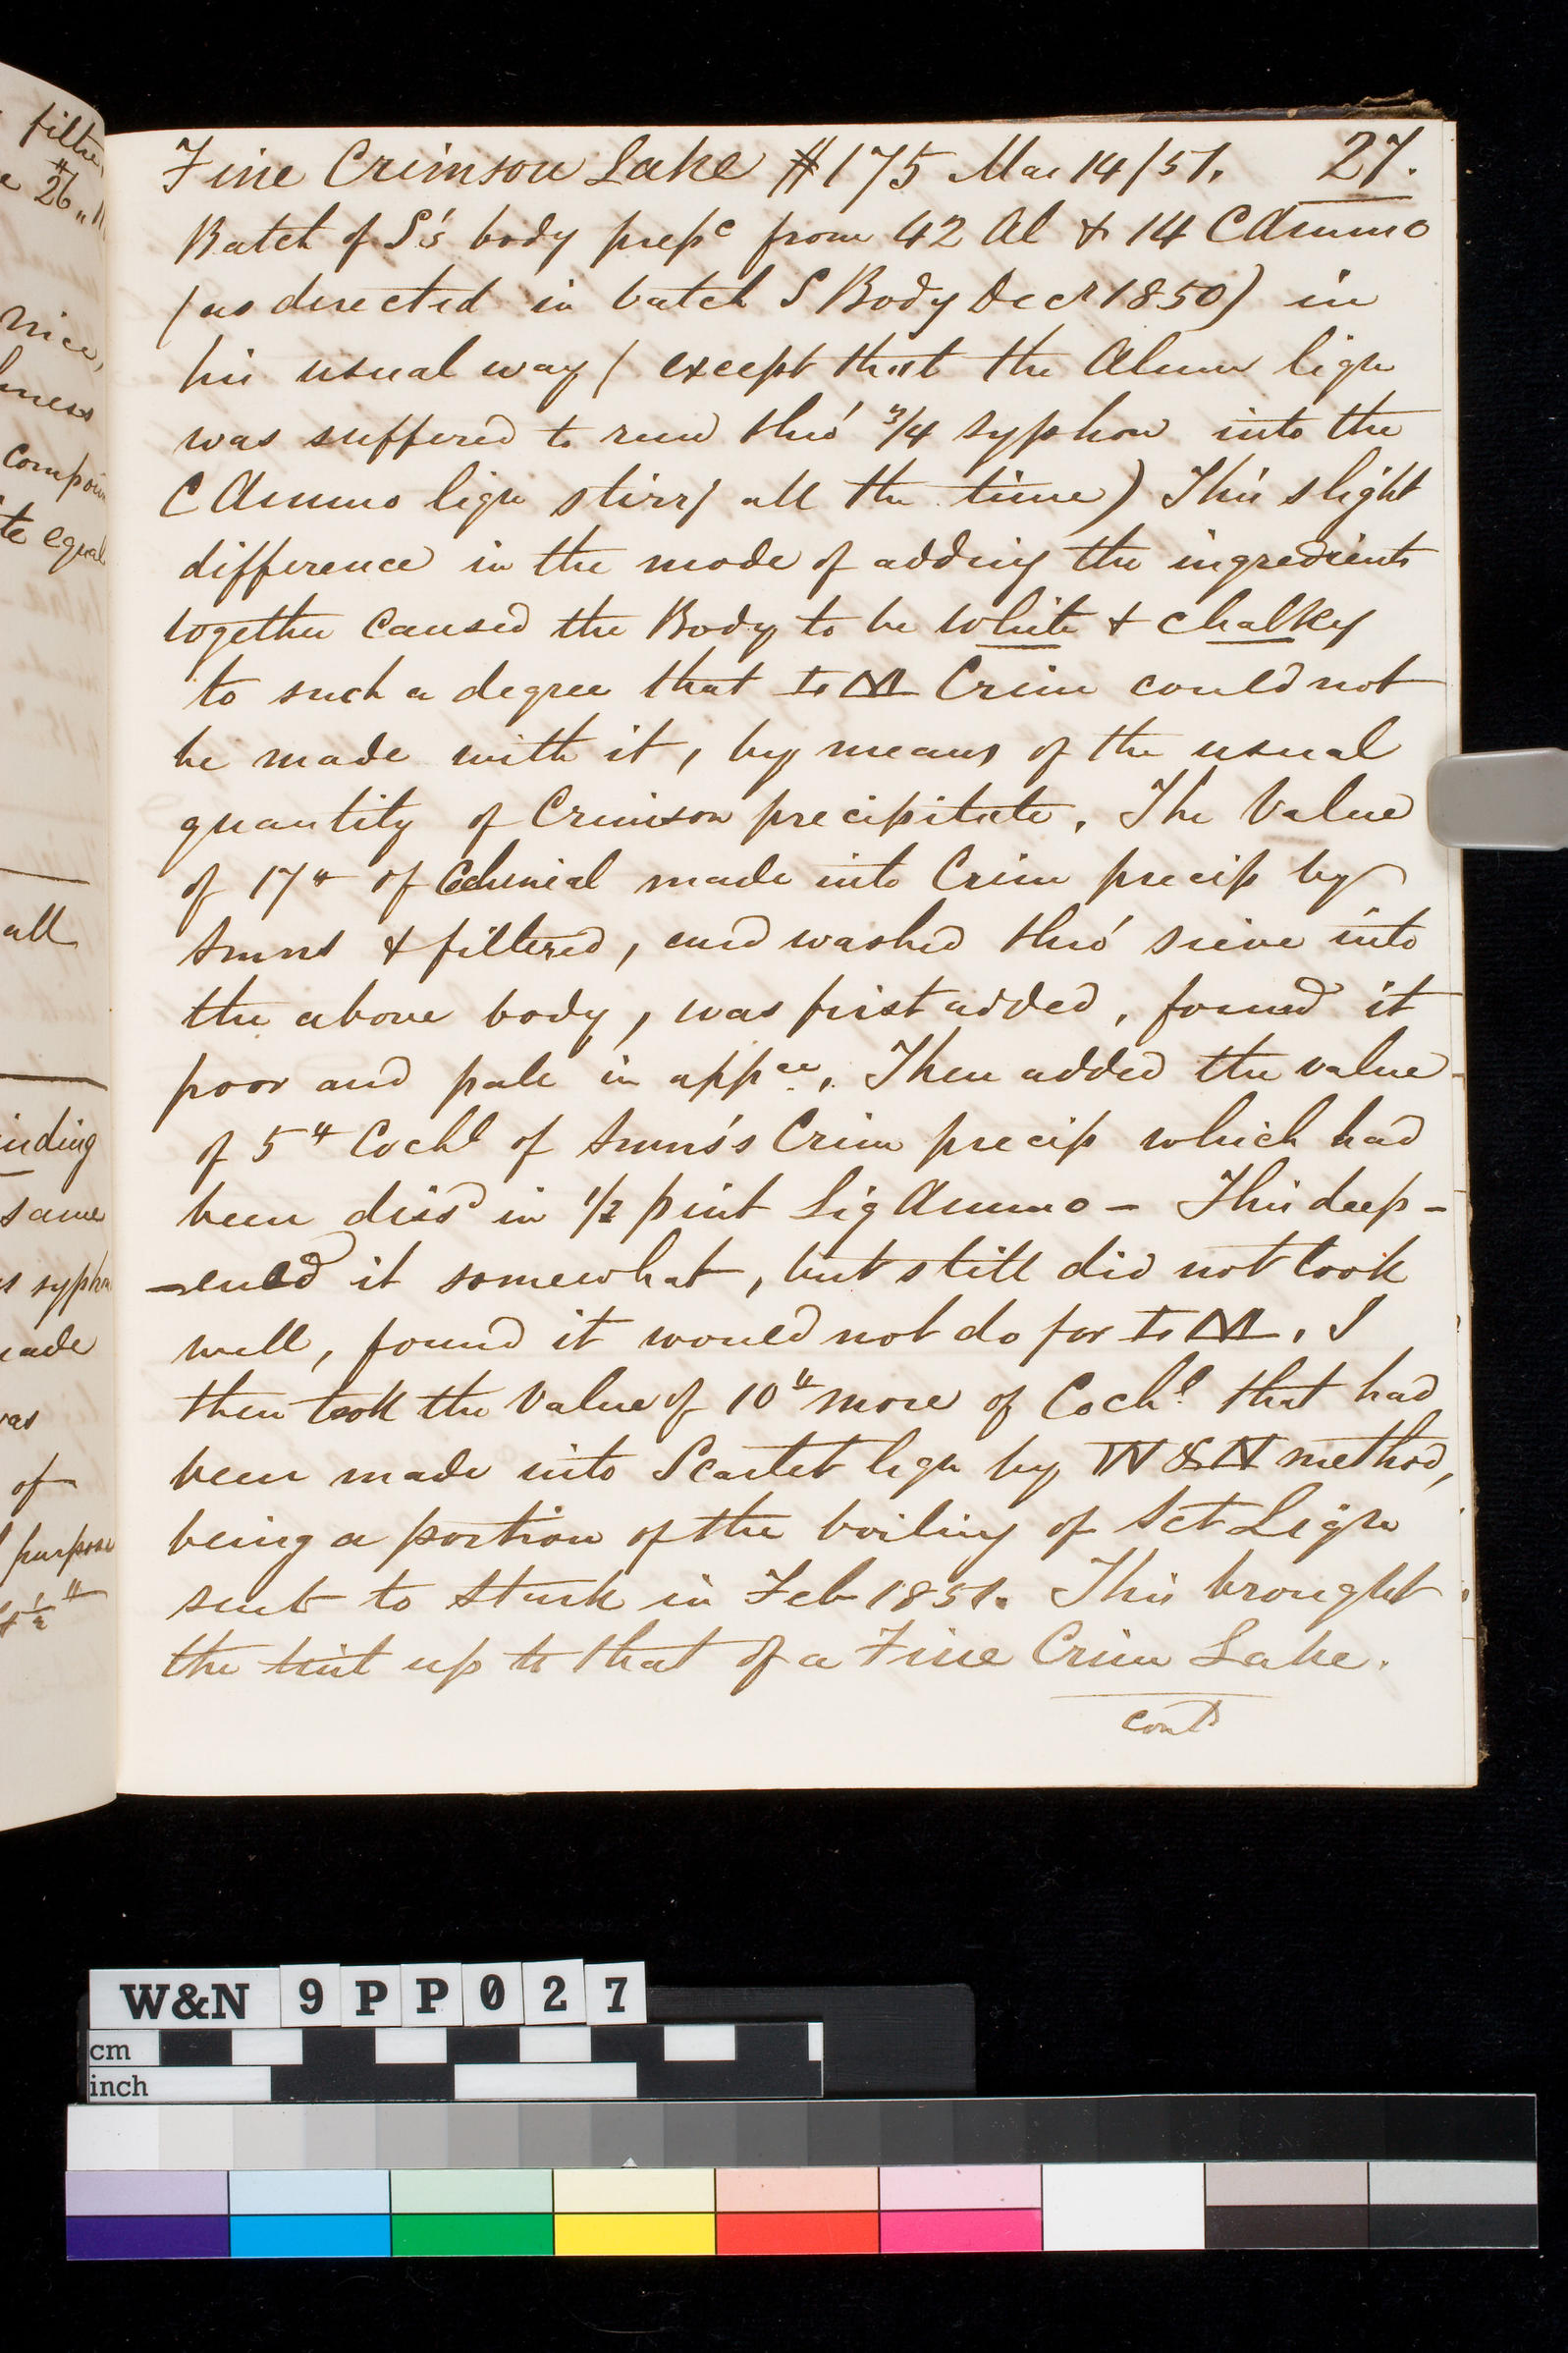 Fine Crimson Lake #175 Mar 14/51. 27.
Batch of S's body prepd from 42 Al & 14 C Ammo
(as directed in batch S Body Decr 1850) in
his usual way (except that the Alum liqr
was suffered to run thro' 3/4 syphon into the
C Ammo liqr stirrg all the time) This slight
difference in the mode of adding the ingredients
together caused the Body to be white & chalky
to such a degree that Crim could not
be made with it, by means of the usual
quantity of Crimson precipitate. The Value
of 17" of Cochineal made into Crim precip by
& filtered, and washed thro' sieve into
the above body, was first added, found it
poor and pale in appce. Then added the value
of 5" Cochl of Crim precip which had
been dissd in 1/2 pint Liq Ammo - This deep-
-ened it somewhat, but still did not look
well, found it would not do for . I
then took the Value of 10" more of Cochl. that had
been made into Scarlet liqr by W&N method,
being a portion of the boiling of Sct Liqr
sent to in Feb 1851. This brought
the tint up to that of a Fine Crim Lake.
contd
filter
26
nice,
compoun
te equal
all
inding
same
s syphon
ade
was
of
purpose
W&N 9PP027
cm
inch